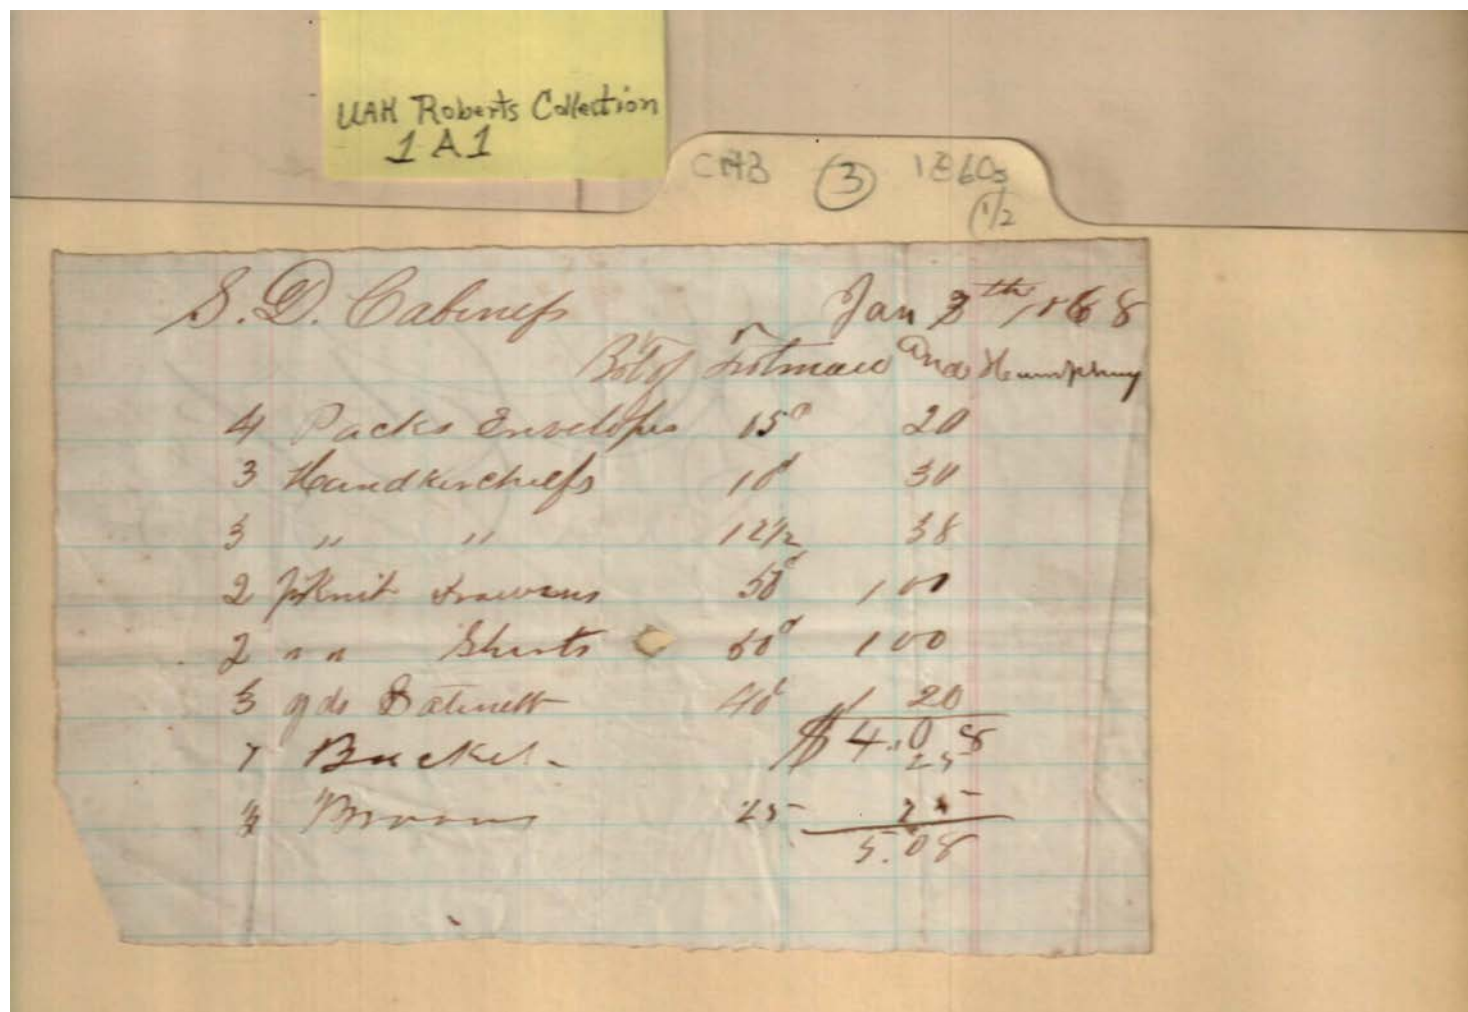 UAH Roberts Collection
1A1
CAB 3 1860s
1/2
S. D. Cabiness Jan 8th, 1868
Bot of and Humphrey
4 Packs Envelopes 15c 20
3 Handkerchiefs 10c 30
3 " " 12 1/2 38
2 pr Knit Drawers 50c 1 00
2 " " Shirts 50c 1 00
3 yds Satinett 40c 1 20
$4.08
1 Bucket 25
Brooms 25 25
5.08